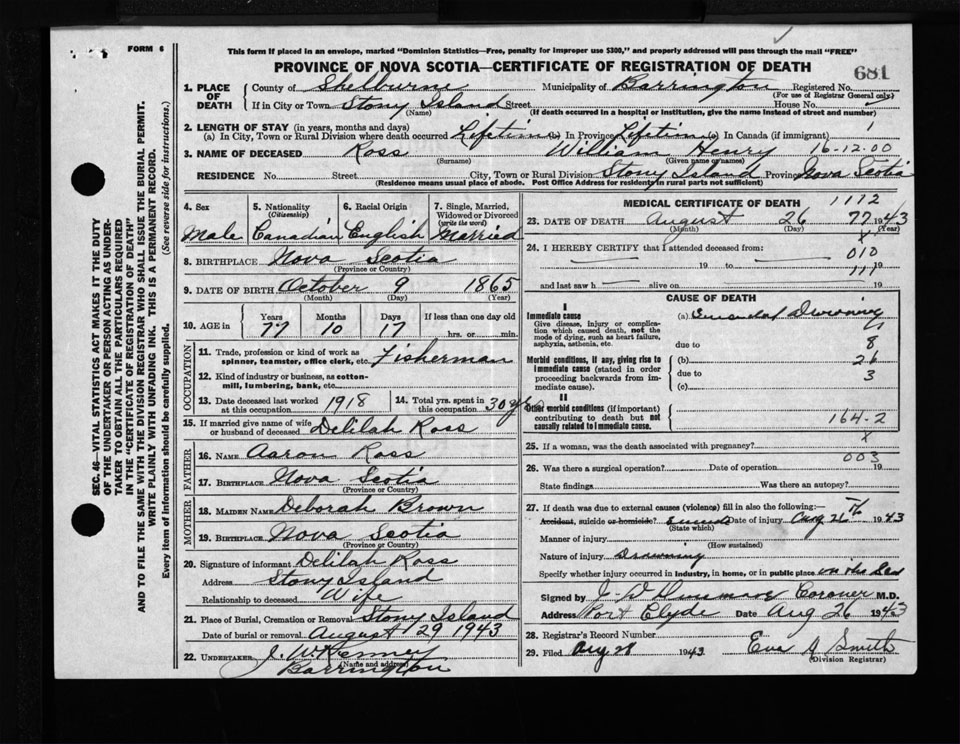 FORM 6
This form if placed in an envelope, marked "Dominion Statistics—Free, penalty for improper use $300," and properly addressed will pass through the mail "FREE"
PROVINCE OF NOVA SCOTIA—CERTIFICATE OF REGISTRATION OF DEATH
681
SEC. 46—VITAL STATISTICS ACT MAKES IT THE DUTY
OF THE UNDERTAKER OR PERSON ACTING AS UNDER-
TAKER TO OBTAIN ALL THE PARTICULARS REQUIRED
IN THE "CERTIFICATE OF REGISTRATION OF DEATH"
AND TO FILE THE SAME WITH THE DIVISION REGISTRAR WHO SHALL ISSUE THE BURIAL PERMIT.
WRITE PLAINLY WITH UNFADING INK. THIS IS A PERMANENT RECORD.
Every item of information should be carefully supplied. (See reverse side for instructions.)
1. PLACE OF DEATH County of Shelburne Municipality of Barrington Registered No.
(For use of Registrar General only)
If in City or Town Stony Island Street House No.
(Name) (If death occurred in a hospital or institution, give the name instead of street and number)
2. LENGTH OF STAY (in years, months and days)
(a) In City, Town or Rural Division where death occurred Lifetime (b) In Province Lifetime (c) In Canada (if immigrant)
3. NAME OF DECEASED Ross William Henry 16-12-00
(Surname) (Given name or names)
RESIDENCE No. Street City, Town or Rural Division Stony Island Province Nova Scotia
(Residence means usual place of abode. Post Office Address for residents in rural parts not sufficient)
4. Sex 5. Nationality (Citizenship) 6. Racial Origin 7. Single, Married, Widowed or Divorced (write the word)
Male Canadian English Married
8. BIRTHPLACE Nova Scotia
(Province or Country)
9. DATE OF BIRTH October 9 1865
(Month) (Day) (Year)
10. AGE in Years Months Days If less than one day old
77 10 17 hrs. or min.
OCCUPATION
11. Trade, profession or kind of work as spinner, teamster, office clerk, etc. Fisherman
12. Kind of industry or business, as cotton-mill, lumbering, bank, etc.
13. Date deceased last worked at this occupation 1918 14. Total yrs. spent in this occupation 30 yrs
15. If married give name of wife or husband of deceased Delilah Ross
FATHER
16. NAME Aaron Ross
17. BIRTHPLACE Nova Scotia
(Province or Country)
MOTHER
18. MAIDEN NAME Deborah Brown
19. BIRTHPLACE Nova Scotia
(Province or Country)
20. Signature of informant Delilah Ross
Address Stony Island
Relationship to deceased Wife
21. Place of Burial, Cremation or Removal Stony Island
Date of burial or removal August 29 1943
22. UNDERTAKER J. W. Kenney
(Name and address)
Barrington
MEDICAL CERTIFICATE OF DEATH 1112
23. DATE OF DEATH August 26 77 1943
(Month) (Day) (Year)
24. I HEREBY CERTIFY that I attended deceased from: x
010
19 to 19
111
and last saw h alive on 19
CAUSE OF DEATH
I
Immediate cause
Give disease, injury or complication which caused death, not the mode of dying, such as heart failure, asphyxia, asthenia, etc.
(a) Drowning
due to 8
Morbid conditions, if any, giving rise to immediate cause (stated in order proceeding backwards from immediate cause).
(b) 26
due to 3
(c)
II
Other morbid conditions (if important) contributing to death but not causally related to immediate cause.
164-2
x
25. If a woman, was the death associated with pregnancy?
003
26. Was there a surgical operation? Date of operation 19
State findings Was there an autopsy?
27. If death was due to external causes (violence) fill in also the following:
Accident, suicide or homicide? Date of injury Aug 26 1943
(State which)
Manner of injury
(How sustained)
Nature of injury Drowning
Specify whether injury occurred in industry, in home, or in public place in the Sea
Signed by Coroner M.D.
Address Port Clyde Date Aug 26 1943
28. Registrar's Record Number
29. Filed Aug 28 1943 Eva Smith
(Division Registrar)